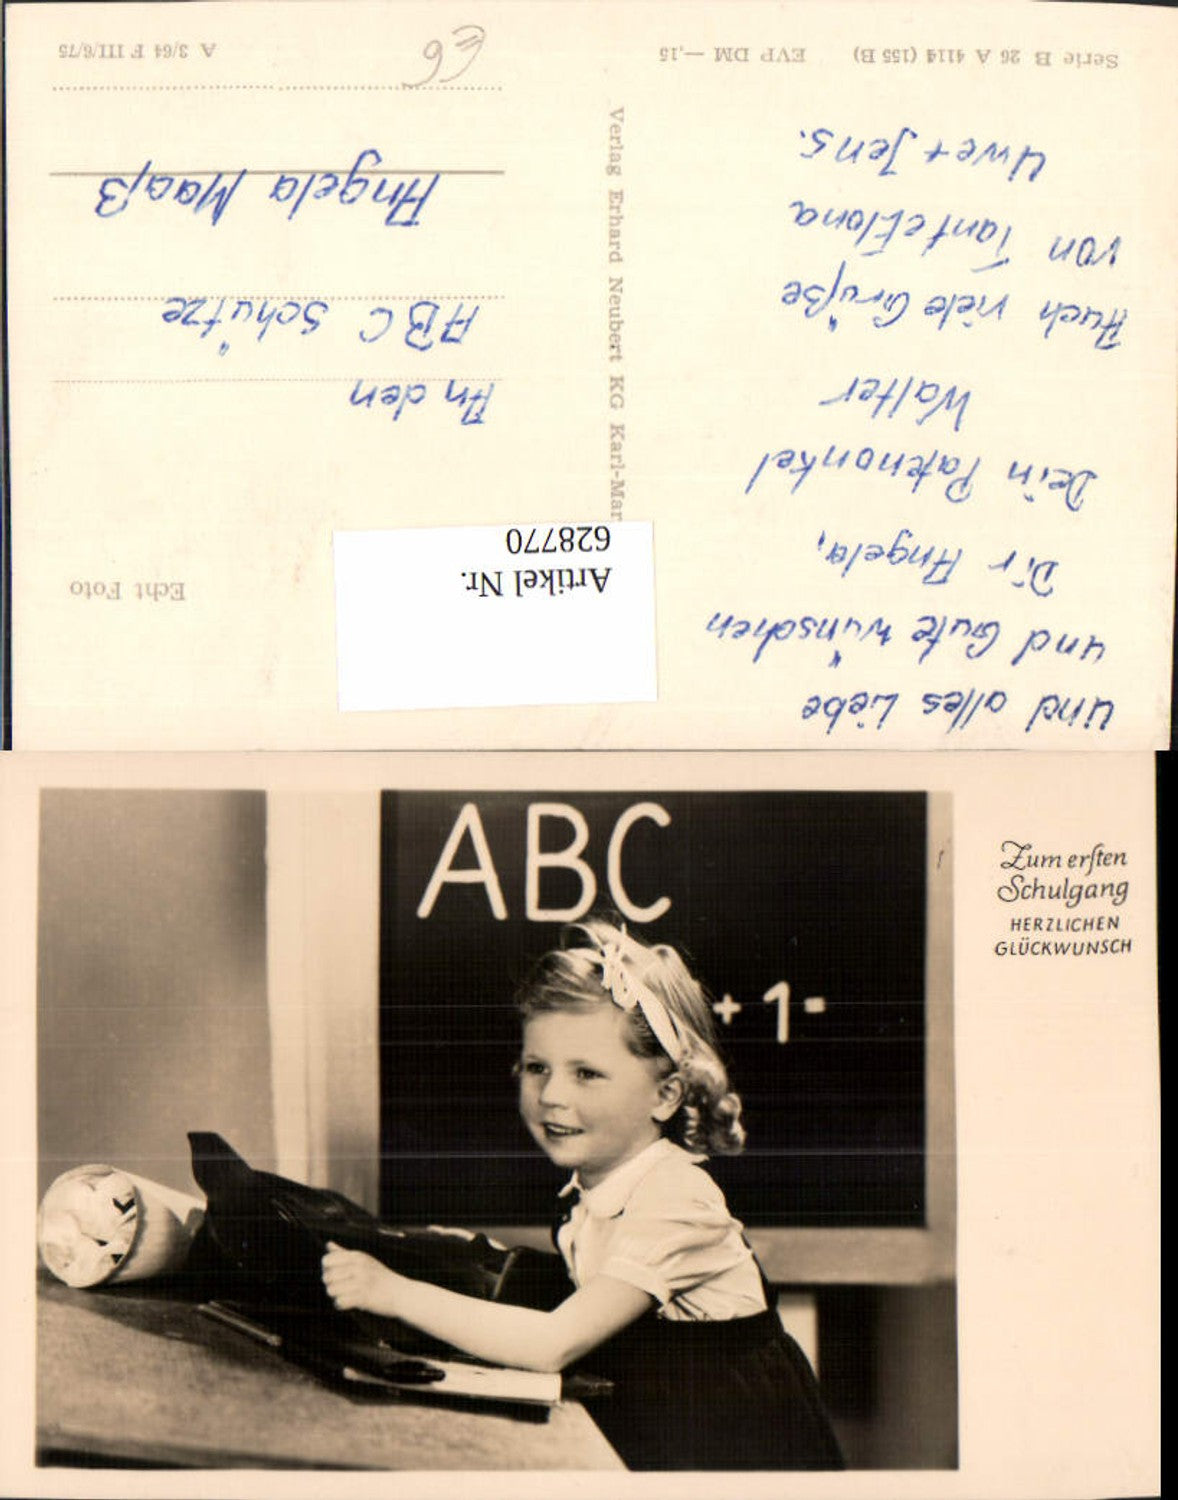 und alles Liebe
und Gute wünschen
Dir Angela,
Dein Patenonkel
Walter
Auch viele Grüße
von Tante Ilona
Uwe + Jens.
Serie B 26 A 4114 (155 B) EVP DM —,15
Verlag Erhard Neubert KG Karl-Mar
Artikel Nr.
628770
Echt Foto
An den
ABC Schütze
Angela Maaß
A 3/64 F III/6/75
ABC
+ 1 =
Zum ersten
Schulgang
HERZLICHEN
GLÜCKWUNSCH